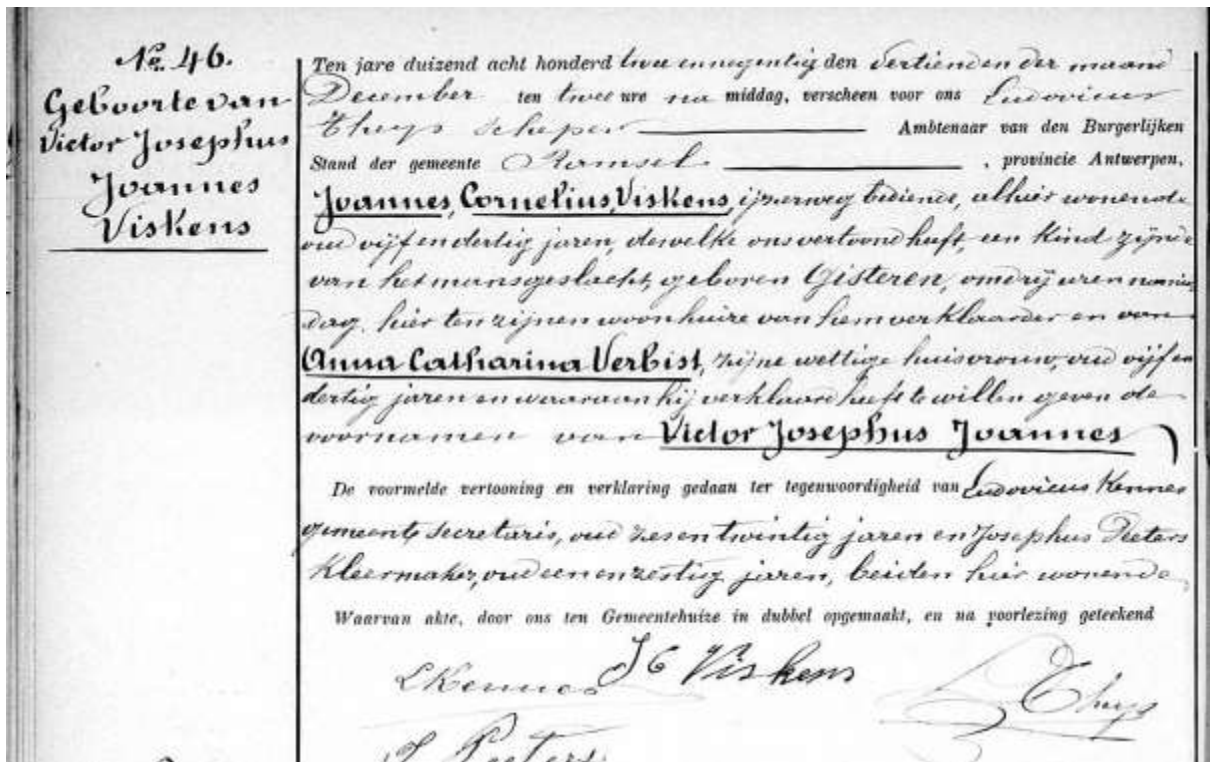 No. 46.
Geboorte van
Victor Josephus
Joannes
Viskens
Ten jare duizend acht honderd twee en negentig den dertienden der maand
December ten twee ure na middag, verscheen voor ons Ludovicus
Thys schepen Ambtenaar van den Burgerlijken
Stand der gemeente Ramsel, provincie Antwerpen,
Joannes, Cornelius, Viskens, ijzerweg bediende, alhier wonende
oud vijf en dertig jaren, dewelke ons vertoond heeft, een kind zijnde
van het mansgeslacht, geboren Gisteren, om drij uren namid
dag hier ten zijnen woonhuize van hem verklaarder en van
Anna Catharina Verbist, zijne wettige huisvrouw, oud vijf en
dertig jaren en waaraan hij verklaard heeft te willen geven de
voornamen van Victor Josephus Joannes
De voormelde vertooning en verklaring gedaan ter tegenwoordigheid van Ludovicus Kennes
gemeente secretaris, oud zes en twintig jaren en Josephus Peeters
Kleermaker, oud een en zestig jaren, beiden hier wonende
Waarvan akte, door ons ten Gemeentehuize in dubbel opgemaakt, en na voorlezing geteekend
LKennes J C Viskens L Thys
J Peeters